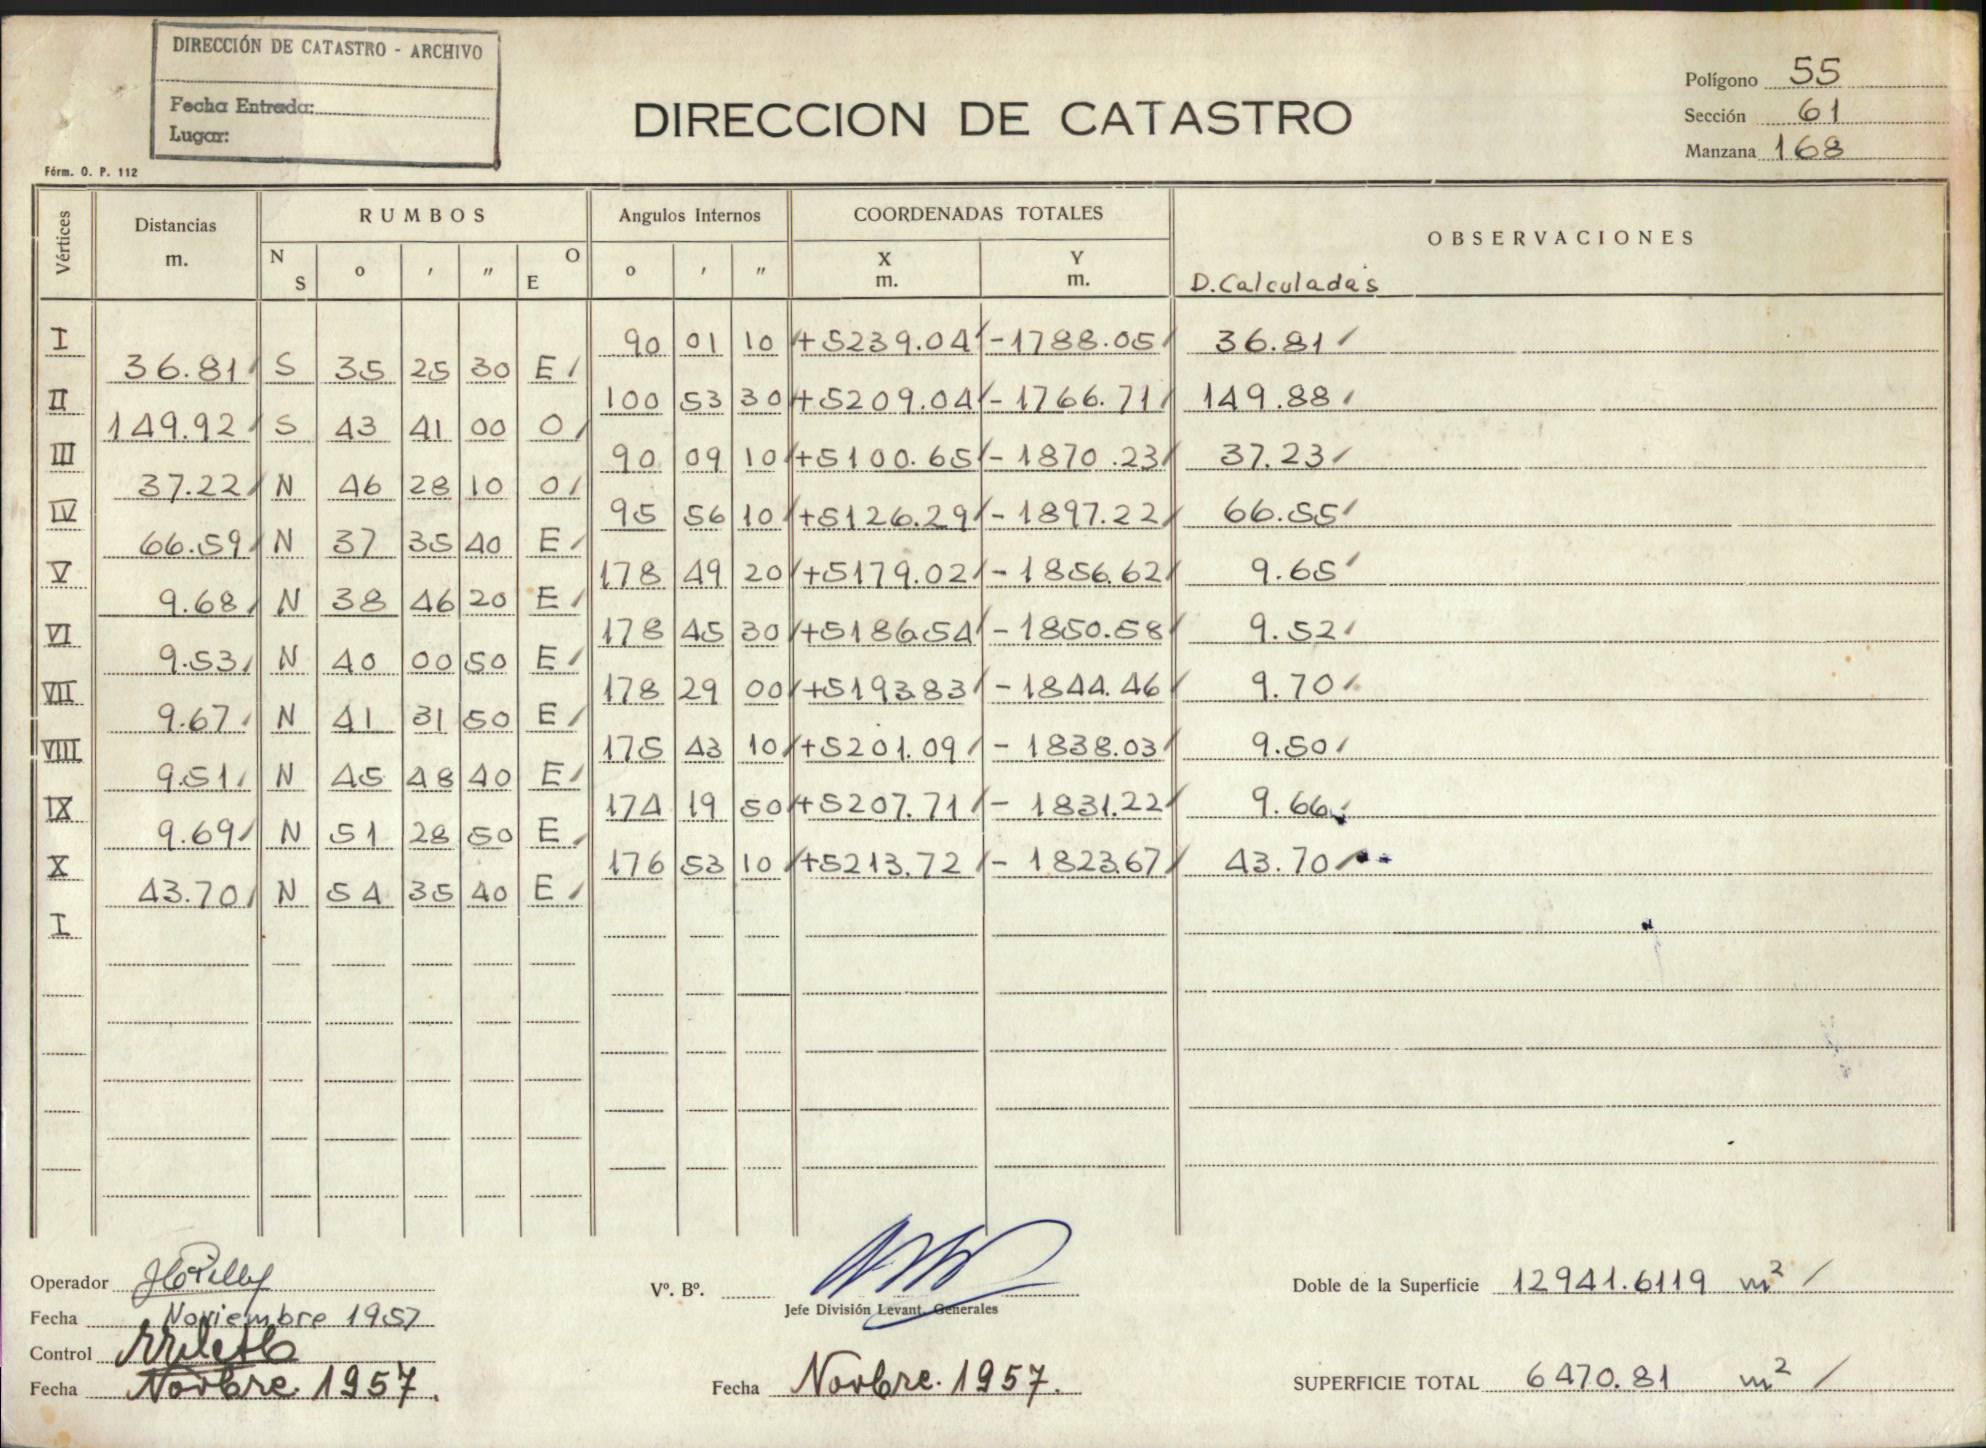 DIRECCIÓN DE CATASTRO - ARCHIVO
Fecha Entrada:
Lugar:
DIRECCION DE CATASTRO
Polígono 55
Sección 61
Manzana 168
Fórm. O. P. 112
Vértices Distancias m. RUMBOS Angulos Internos COORDENADAS TOTALES OBSERVACIONES
N S o ' " O E o ' " X m. Y m. D. Calculadas
I 90 01 10 +5239.04 -1788.05 36.81
36.81 S 35 25 30 E
II 100 53 30 +5209.04 -1766.71 149.88
149.92 S 43 41 00 O
III 90 09 10 +5100.65 -1870.23 37.23
37.22 N 46 28 10 O
IV 95 56 10 +5126.29 -1897.22 66.55
66.59 N 37 35 40 E
V 178 49 20 +5179.02 -1856.62 9.65
9.68 N 38 46 20 E
VI 178 45 30 +5186.54 -1850.58 9.52
9.53 N 40 00 50 E
VII 178 29 00 +5193.83 -1844.46 9.70
9.67 N 41 31 50 E
VIII 175 43 10 +5201.09 -1838.03 9.50
9.51 N 45 48 40 E
IX 174 19 50 +5207.71 -1831.22 9.66
9.69 N 51 28 50 E
X 176 53 10 +5213.72 -1823.67 43.70
43.70 N 54 35 40 E
I
Operador
Fecha Noviembre 1957
Control
Fecha Novbre. 1957.
Vº. Bº.
Jefe División Levant. Generales
Fecha Novbre. 1957.
Doble de la Superficie 12941.6119 m²
SUPERFICIE TOTAL 6470.81 m²